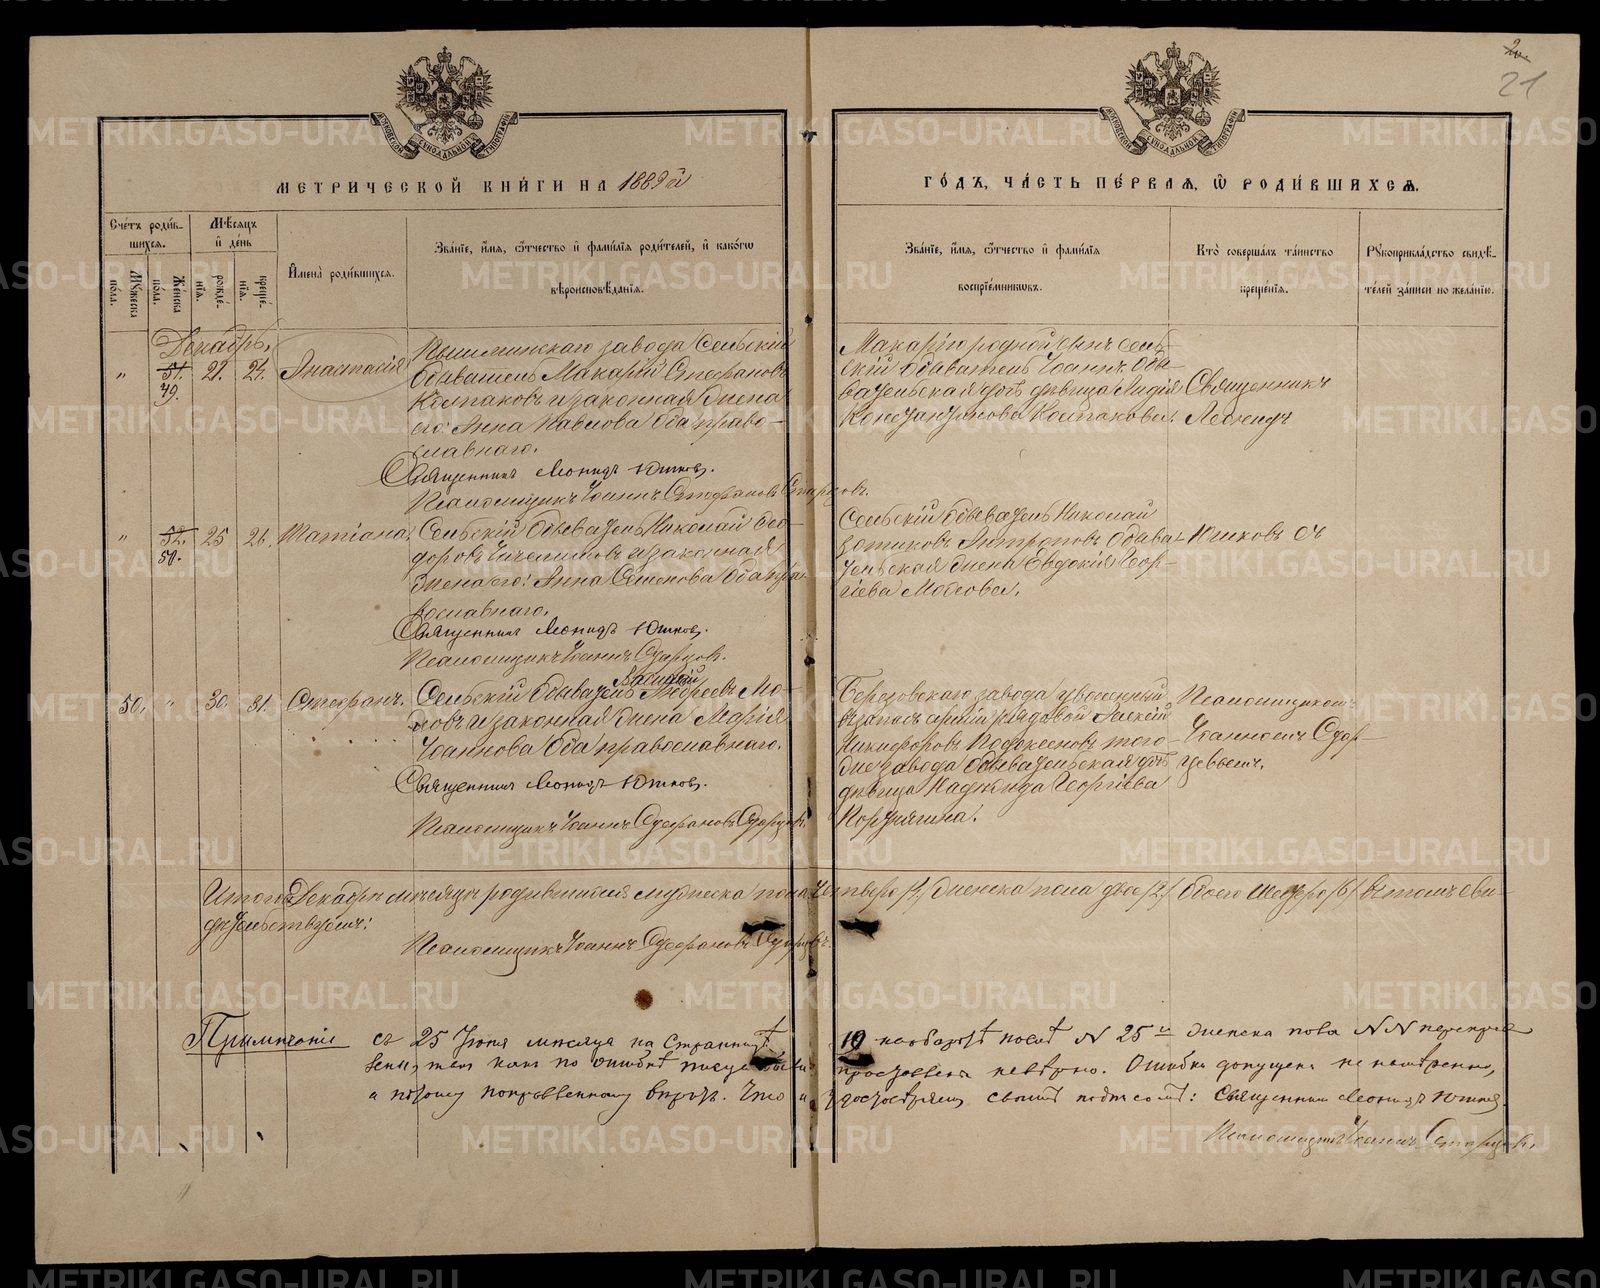 2
21
МОСКОВСКОЙ СУНОДАЛЬНОЙ ТИПОГРАФІИ
МОСКОВСКОЙ СУНОДАЛЬНОЙ ТИПОГРАФІИ
МЕТРИЧЕСКОЙ КНИ́ГИ НА 1889й
ГО́ДЪ, ЧА́СТЬ ПЕ́РВАЯ, Ѡ РОДИ́ВШИХСЯ.
Сче́тъ роди́в-
шихся.
Мꙋжеска по́ла.
Же́нска по́ла.
Мѣ́сяцъ
и де́нь
рожде́-
нїѧ.
креще́-
нїѧ.
Имена̀ роди́вшихся.
Зва́нїе, и́мя, ѻ́тчество и фами́лїя роди́телей, и како́гѡ
вѣроисповѣ́данїя.
Зва́нїе, и́мя, ѻ́тчество и фами́лїя
воспрїе́мникѡвъ.
Кто̀ соверша́лъ та́инство
креще́нїя.
Рꙋкоприкла́дство свидѣ́-
телей за́писи по жела́нїю.
Декабрь.
" 51. 49. 21. 24. Анастасія
Пышминскаго завода Сельскій
обыватель Макарій Стефановъ
Колпаковъ и законная жена
его: Анна Павлова оба право-
славнаго.
Священникъ Леонидъ Юшков.
Псаломщикъ Іоаннъ Стефановъ Старцовъ.
Макарію родной сынъ сель-
скій обыватель Іоаннъ обы-
вательская дочь дѣвица Лидія
Константинова Колпакова.
Священникъ
Леонидъ
" 52. 50. 25 26. Татіана.
Сельскій обыватель Николай Ѳео-
доровъ и законная
жена его: Анна Семенова оба пра-
вославнаго.
Священникъ Леонидъ Юшков.
Псаломщикъ Іоаннъ Старцов.
Сельскій обыватель Николай
Антроповъ обыва-
тельская жена Евдокія Геор-
гіева
Юшковъ съ
50. " 30. 31. Стефанъ.
Сельскій обыватель Василій Андреевъ
и законная жена Марія
Іоаннова оба православнаго.
Священникъ Леонидъ Юшков.
Псаломщикъ Іоаннъ Стефановъ Старцов.
Березовскаго завода уволенный
въ запасъ арміи рядовой Алексій
Никифоровъ того-
же завода обывательская дочь
дѣвица Надежда Георгіева
Псаломщикомъ
Іоанномъ Стар-
цевымъ.
Итого въ Декабрѣ мѣсяцѣ родившихся мужеска пола четверо /4/ женска пола двое /2/ обоего шестеро /6/ въ томъ сви-
дѣтельствуемъ:
Псаломщикъ Іоаннъ Стефановъ Старцовъ.
Примѣчаніе съ 25 Іюня мѣсяца на страницѣ 10 на оборотѣ послѣ N 25го женска пола NN
такъ какъ по ошибкѣ невѣрно. Ошибка допущена не намѣренно,
а потому Что и удостовѣряемъ своимъ подписомъ: Священникъ Леонидъ Юшков.
Псаломщикъ Іоаннъ Старцов.
METRIKI.GASO-URAL.RU